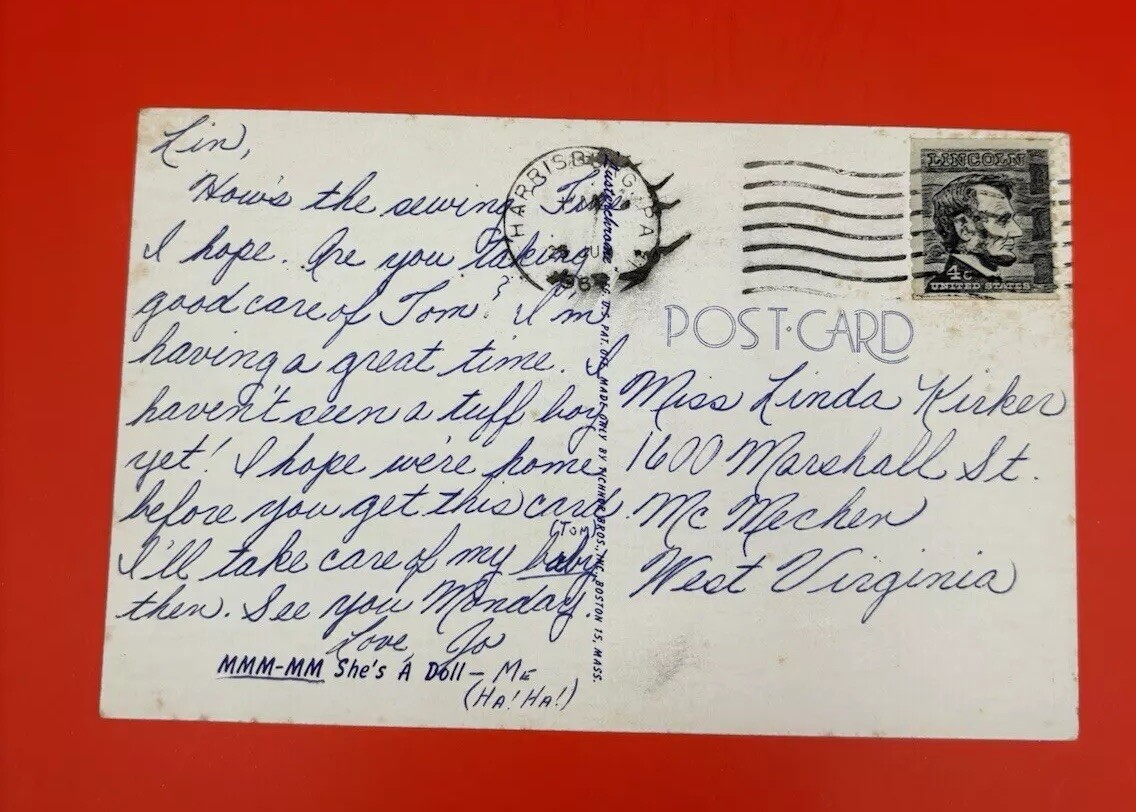 Lin,
How's the sewing Fine
I hope. Are you taking
good care of Tom? I'm
having a great time. I
haven't seen a tuff boy
yet! I hope we're home
before you get this card.
(Tom)
I'll take care of my baby
then. See you Monday.
Love, Jo
MMM-MM She's A Doll - ME
(HA! HA!)
HARRISBURG, PA.
Lusterchrome
REG. U.S. PAT. OFF. MADE ONLY BY TICHNOR BROS., INC., BOSTON 15, MASS.
LINCOLN
4c
UNITED STATES
POST·CARD
Miss Linda Kirker
1600 Marshall St.
Mc Mechen
West Virginia